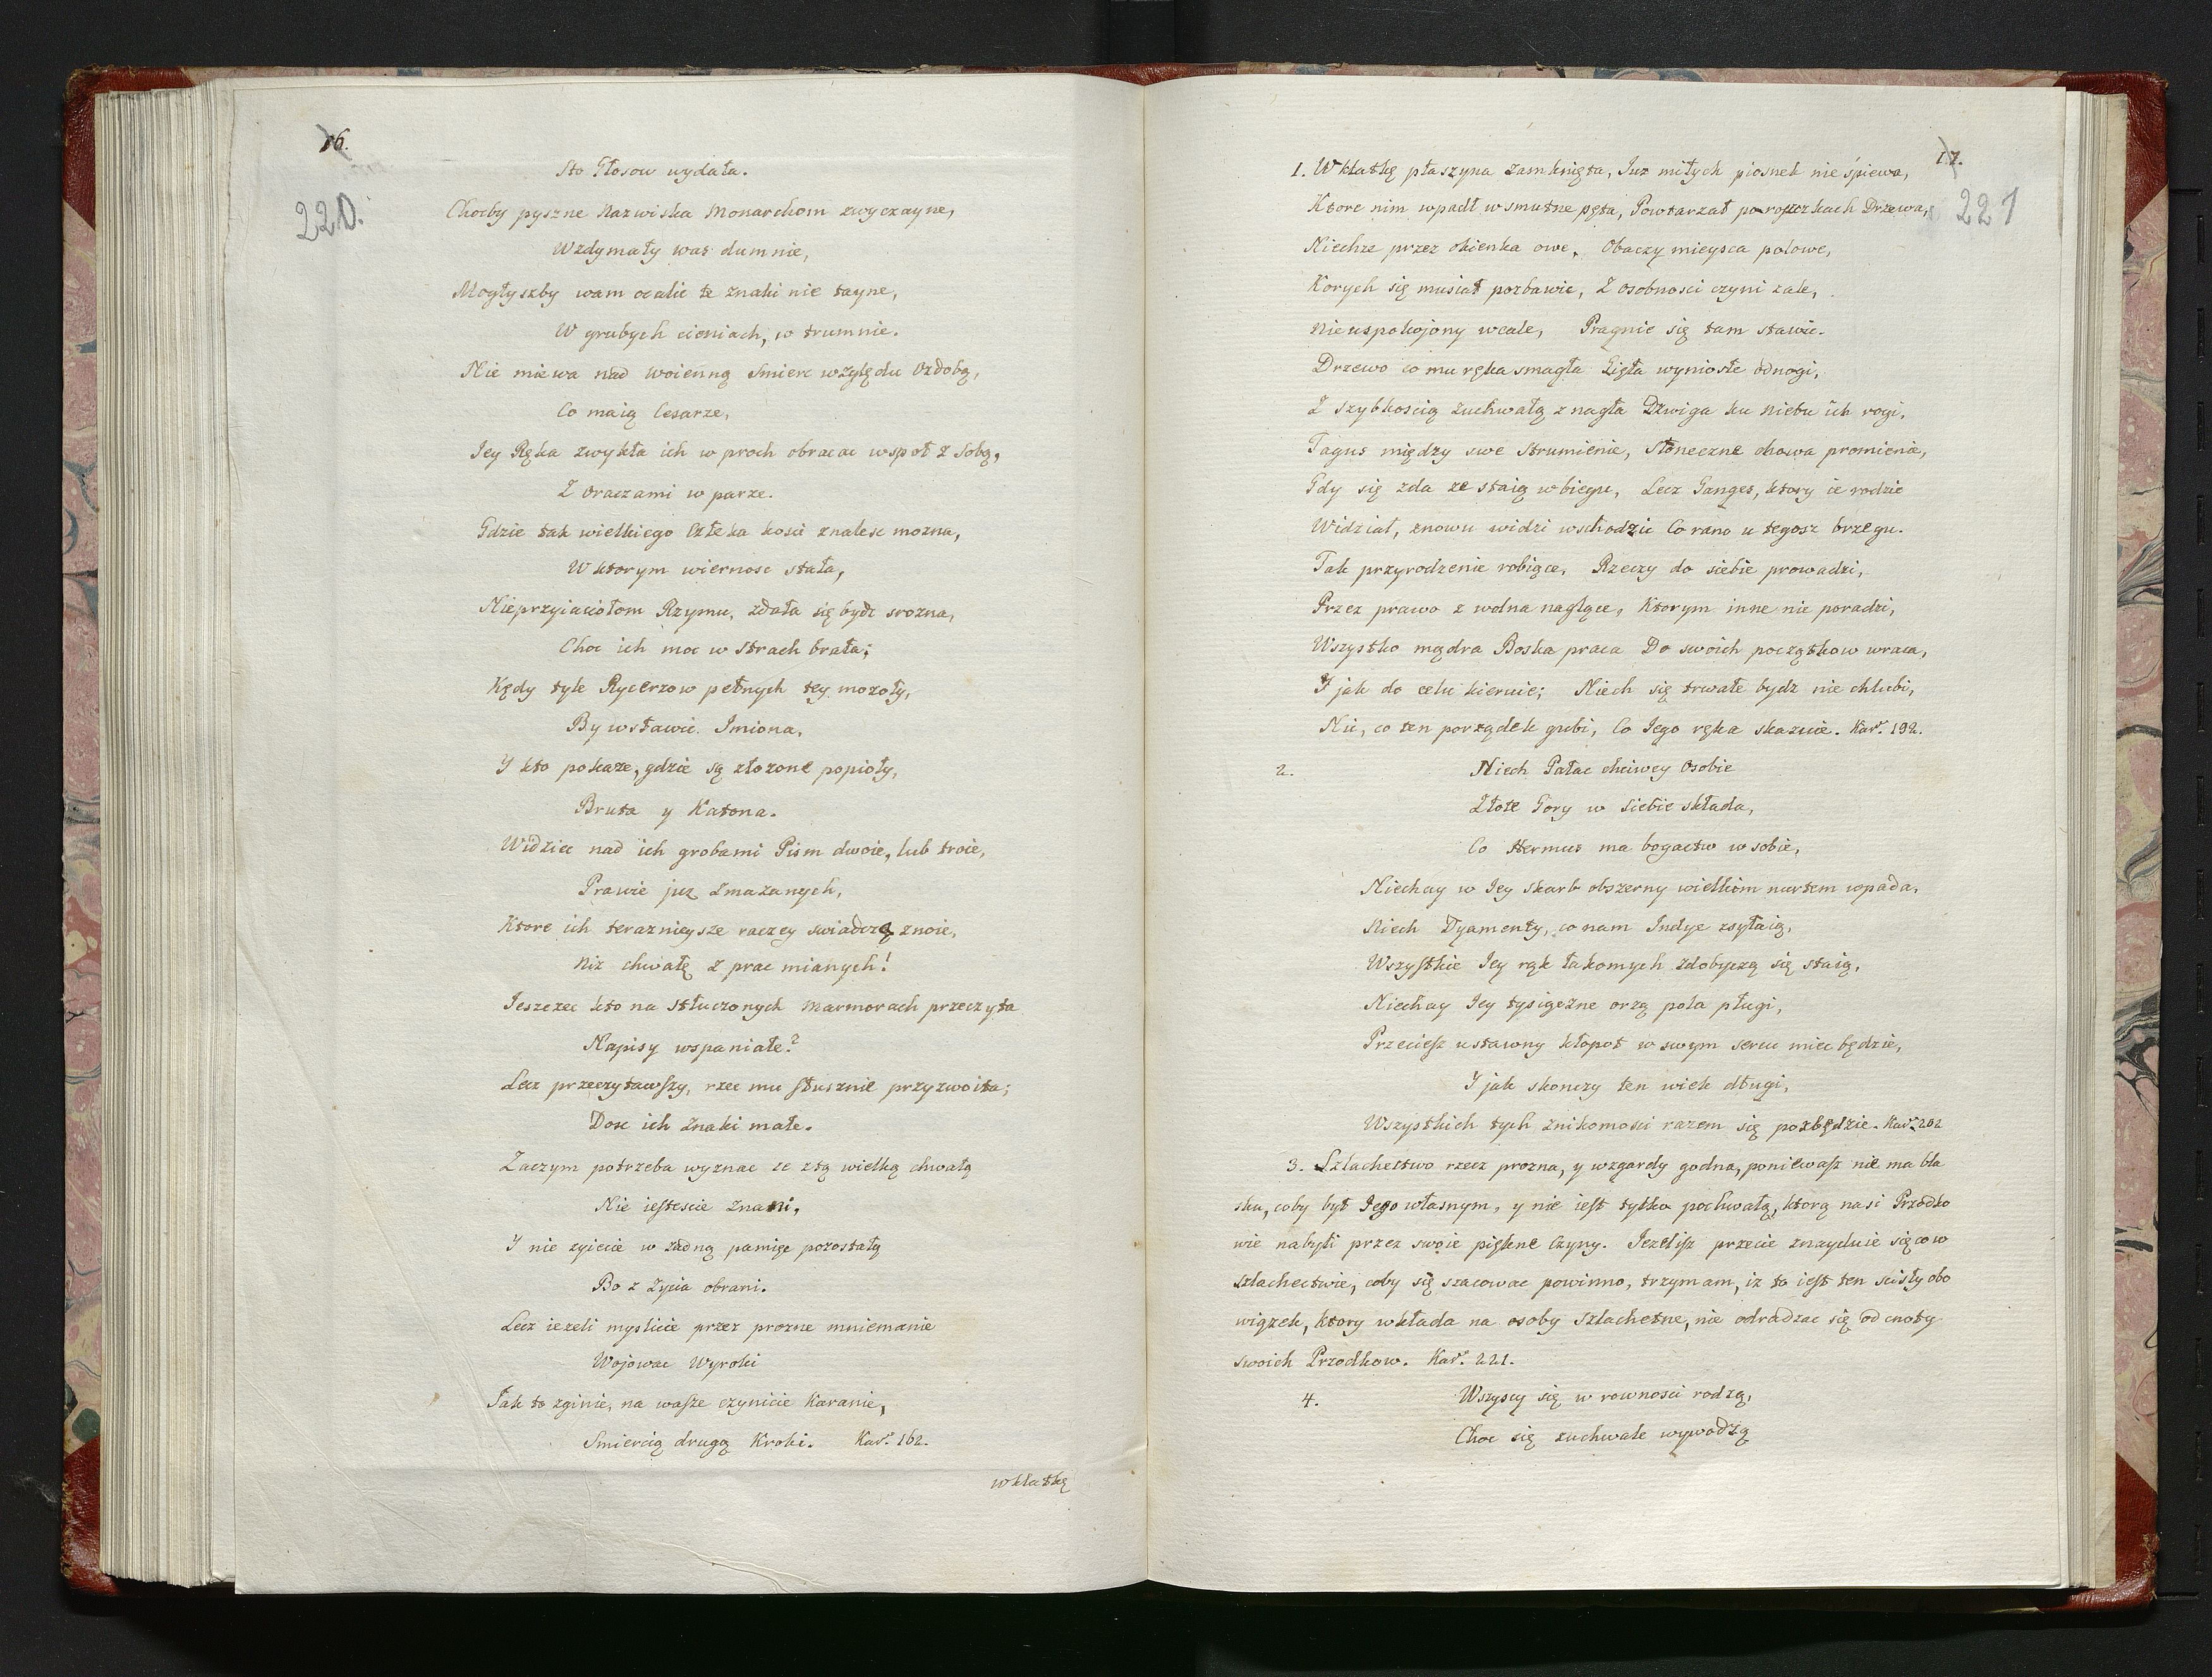 16.
220.
Sto Głosow wydała.
Chocby pyszne Nazwiska Monarchom zwyczayne,
Wzdymały was dumnie,
Mogłyszby wam ocalic te znaki nie tayne,
W grubych cieniach, w trumnie.
Nie miewa nad woienną Smierc względu Ozdobą,
Co maią Cesarze,
Jey Ręka zwykła ich w proch obracac wspoł z Sobą,
Z Oraczami w parze.
Gdzie tak wielkiego Człeka kosci znalesc mozna,
W ktorym wiernosc stała,
Nieprzyiaciołom Rzymu, zdała się bydz srozna,
Choc ich moc w Strach brała;
Kędy tyle Rycerzow pełnych tey mozoły,
By wsławic Imiona,
Y kto pokaze, gdzie są złozone popioły,
Bruta y Katona.
Widziec nad ich grobami Pism dwoie, lub troie,
Prawie juz Zmazanych,
Ktore ich teraznieysze raczey swiadczą znoie,
Niz chwałę z prac mianych!
Jeszczec kto na Stłuczonych Marmorach przeczyta
Napisy wspaniałe?
Lecz przeczytawszy, rzec mu słusznie przyzwoita;
Dosc ich Znaki małe.
Zaczym potrzeba wyznac ze ztą wielką chwałą
Nie iestescie Znani,
Y nie zyiecie w zadną pamięc pozostałą
Bo z Zycia obrani.
Lecz iezeli myslicie przez prozne mniemanie
Wojowac Wyroki
Tak to zginie, na wasze czynicie Karanie,
Smiercią drugą Kroki. Kar. 162.
w klatkę
17.
221
1. W klatkę ptaszyna zamknięta, Juz miłych piosnek nie śpiewa,
Ktore nim wpadł w smutne pęta, Powtarzał po roszczkach Drzewa,
Niechze przez okienka owe, Obaczy mieysca polowe,
Korych się musiał pozbawic, Z osobnosci czyni zale,
Nieuspokojony wcale, Pragnie się tam stawic.
Drzewo co mu ręka smagła Zięła wyniosłe odnogi,
Z szybkoscią zuchwałą znagła Dzwiga ku Niebu ich rogi,
Tagus między swe Strumienie, Słoneczne chowa promienie,
Gdy się zda ze staią w biegu, Lecz Ganges, ktory ie rodzic
Widział, znowu widzi wschodzic Co rano u tegosz brzegu.
Tak przyrodzenie robiące, Rzeczy do siebie prowadzi,
Przez prawo z wolna naglące, Ktorym inne nie poradzi,
Wszystko mądra Boska praca Do swoich początkow wraca,
Y jak do celu kieruie; Niech się trwałe bydz nie chlubi,
Nic, co ten porządek gubi, Co Jego ręka skazuie. Kar. 192.
2. Niech Pałac chciwey Osobie
Złote Gory w Siebie składa,
Co Hermus ma bogactw w sobie,
Niechay w Jey Skarb obszerny wielkim nurtem wpada,
Niech Dyamenty, co nam Indye zsyłaią,
Wszystkie Jey rąk łakomych zdobyczą się staią,
Niechay Jey tysiączne orzą pola pługi,
Przeciesz ustawny kłopot w swym sercu miec będzie,
Y jak skonczy ten wiek długi,
Wszystkich tych Znikomosci razem się pozbędzie. Kar. 202
3. Szlachectwo rzecz prozna, y wzgardy godna, poniewasz nie ma bla
sku, coby był Jego własnym, y nie iest tylko pochwałą, ktorą nasi Przodko
wie nabyli przez swoie piękne Czyny. Jezelisz przecie znayduie się co w
szlachectwie, coby się szacowac powinno, trzymam, iz to iest ten scisły obo
wiązek, ktory wkłada na osoby Szlachetne, nie odradzac się od cnoty
swoich Przodkow. Kar. 221.
4. Wszyscy się w rownosci rodzą,
Choc się zuchwale wywodzą